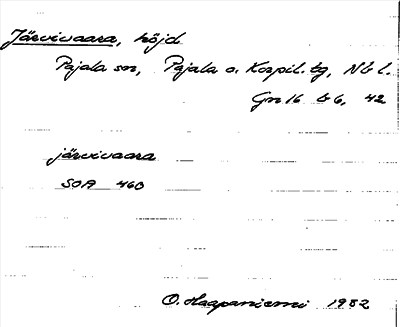 Järvivaara, höjd
Pajala sn, Pajala o. Korpil. tg, Nb l.
Gn 16 b 6, 42
järvivaara
SOA 460
O. Haapaniemi 1982